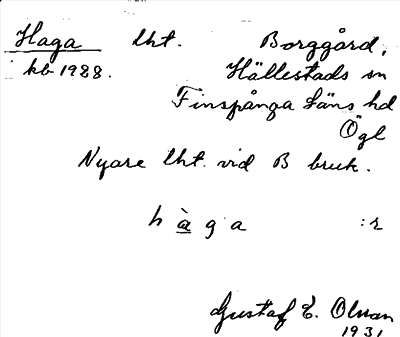 Haga lht. Borggård,
kb 1988. Hällestads sn
Finspånga läns hd
Ögl
Nyare lht. vid B bruk.
hàga :r
Gustaf E. Olsson
1931